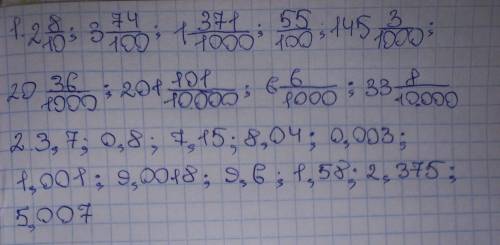 1. 2 8/10; 3 74/100; 1 371/1000; 55/100; 145 3/1000;
20 36/1000; 201 101/10000; 6 6/1000; 33 8/10000
2 3,7; 0,8; 7,15; 8,04; 0,003;
1,001; 9,0018; 9,6; 1,58; 2,375;
5,007